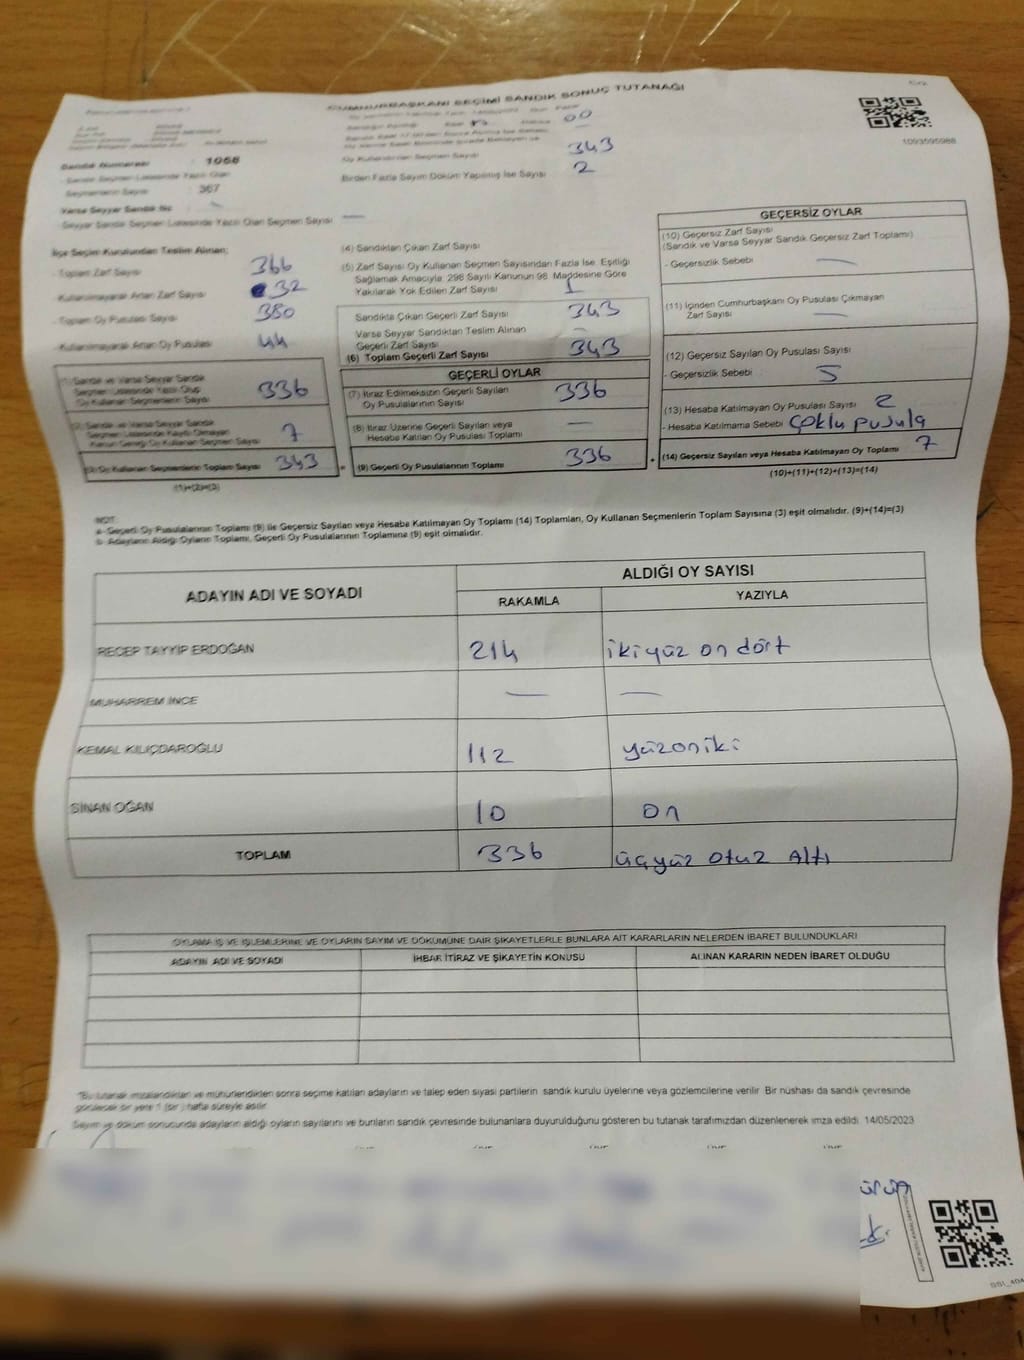 CUMHURBAŞKANI SEÇİMİ SANDIK SONUÇ TUTANAĞI
00
1093595988
Sandık Numarası : 1068
343
Oy Kullandıran Seçmen Sayısı
Birden Fazla Sayım Döküm Yapılmış İse Sayısı 2
Seçmenlerin Sayısı : 367
Varsa Seyyar Sandık No
Seyyar Sandık Seçmen Listesinde Yazılı Olan Seçmen Sayısı —
İlçe Seçim Kurulundan Teslim Alınan;
- Toplam Zarf Sayısı 366
- Kullanılmayarak Artan Zarf Sayısı 32
- Toplam Oy Pusulası Sayısı 380
- Kullanılmayarak Artan Oy Pusulası 44
(1) Sandık ve Varsa Seyyar Sandık
Seçmen Listesinde Yazılı Olup
Oy Kullanan Seçmenlerin Sayısı 336
(2) Sandık ve Varsa Seyyar Sandık
Seçmen Listesinde Kayıtlı Olmayan
Kanun Gereği Oy Kullanan Seçmen Sayısı 7
(3) Oy Kullanan Seçmenlerin Toplam Sayısı 343
(1)+(2)=(3)
(4) Sandıktan Çıkan Zarf Sayısı
(5) Zarf Sayısı Oy Kullanan Seçmen Sayısından Fazla İse, Eşitliği
Sağlamak Amacıyla; 298 Sayılı Kanunun 98. Maddesine Göre
Yakılarak Yok Edilen Zarf Sayısı 1
Sandıkta Çıkan Geçerli Zarf Sayısı 343
Varsa Seyyar Sandıktan Teslim Alınan
Geçerli Zarf Sayısı —
(6) Toplam Geçerli Zarf Sayısı 343
GEÇERLİ OYLAR
(7) İtiraz Edilmeksizin Geçerli Sayılan
Oy Pusulalarının Sayısı 336
(8) İtiraz Üzerine Geçerli Sayılan veya
Hesaba Katılan Oy Pusulası Toplamı —
= (9) Geçerli Oy Pusulalarının Toplamı 336 +
GEÇERSİZ OYLAR
(10) Geçersiz Zarf Sayısı
(Sandık ve Varsa Seyyar Sandık Geçersiz Zarf Toplamı)
- Geçersizlik Sebebi —
(11) İçinden Cumhurbaşkanı Oy Pusulası Çıkmayan
Zarf Sayısı —
(12) Geçersiz Sayılan Oy Pusulası Sayısı
- Geçersizlik Sebebi 5
(13) Hesaba Katılmayan Oy Pusulası Sayısı 2
- Hesaba Katılmama Sebebi Çoklu pusula
(14) Geçersiz Sayılan veya Hesaba Katılmayan Oy Toplamı 7
(10)+(11)+(12)+(13)=(14)
NOT:
a- Geçerli Oy Pusulalarının Toplamı (9) ile Geçersiz Sayılan veya Hesaba Katılmayan Oy Toplamı (14) Toplamları, Oy Kullanan Seçmenlerin Toplam Sayısına (3) eşit olmalıdır. (9)+(14)=(3)
b- Adayların Aldığı Oyların Toplamı, Geçerli Oy Pusulalarının Toplamına (9) eşit olmalıdır.
ADAYIN ADI VE SOYADI
ALDIĞI OY SAYISI
RAKAMLA YAZIYLA
RECEP TAYYİP ERDOĞAN 214 ikiyüz on dört
MUHARREM İNCE — —
KEMAL KILIÇDAROĞLU 112 yüzoniki
SİNAN OĞAN 10 on
TOPLAM 336 üçyüz otuz Altı
OYLAMA İŞ VE İŞLEMLERİNE VE OYLARIN SAYIM VE DÖKÜMÜNE DAİR ŞİKAYETLERLE BUNLARA AİT KARARLARIN NELERDEN İBARET BULUNDUKLARI
ADAYIN ADI VE SOYADI İHBAR İTİRAZ VE ŞİKAYETİN KONUSU ALINAN KARARIN NEDEN İBARET OLDUĞU
*Bu tutanak imzalandıktan ve mühürlendikten sonra seçime katılan adayların ve talep eden siyasi partilerin sandık kurulu üyelerine veya gözlemcilerine verilir. Bir nüshası da sandık çevresinde
görülecek bir yere 1 (bir) hafta süreyle asılır.
Sayım ve döküm sonucunda adayların aldığı oyların sayılarını ve bunların sandık çevresinde bulunanlara duyurulduğunu gösteren bu tutanak tarafımızdan düzenlenerek imza edildi. 14/05/2023